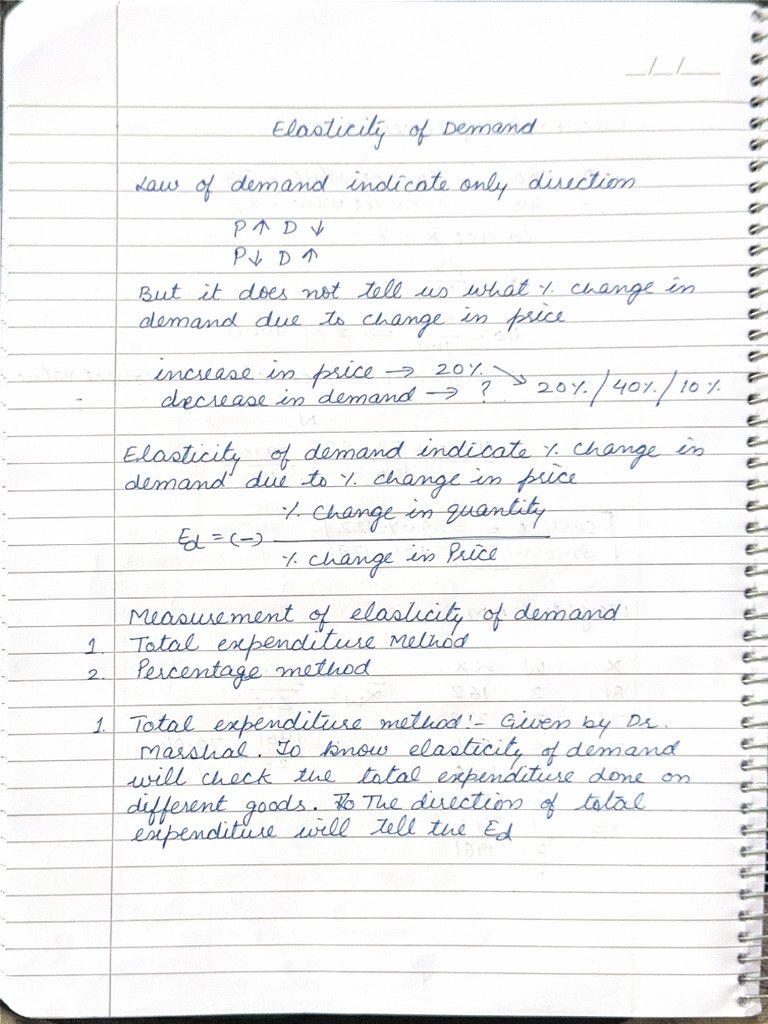 __/__/____
Elasticity of Demand
Law of demand indicate only direction
P↑ D ↓
P↓ D ↑
But it does not tell us what % change in
demand due to change in price
increase in price → 20% ↘ 20% / 40% / 10%
decrease in demand → ?
Elasticity of demand indicate % change in
demand due to % change in price
% change in quantity
Ed = (-) ————
% change in Price
Measurement of elasticity of demand
1. Total expenditure Method
2. Percentage method
1. Total expenditure method:- Given by Dr.
Marshal. To know elasticity of demand
will check the total expenditure done on
different goods. To The direction of total
expenditure will tell the Ed